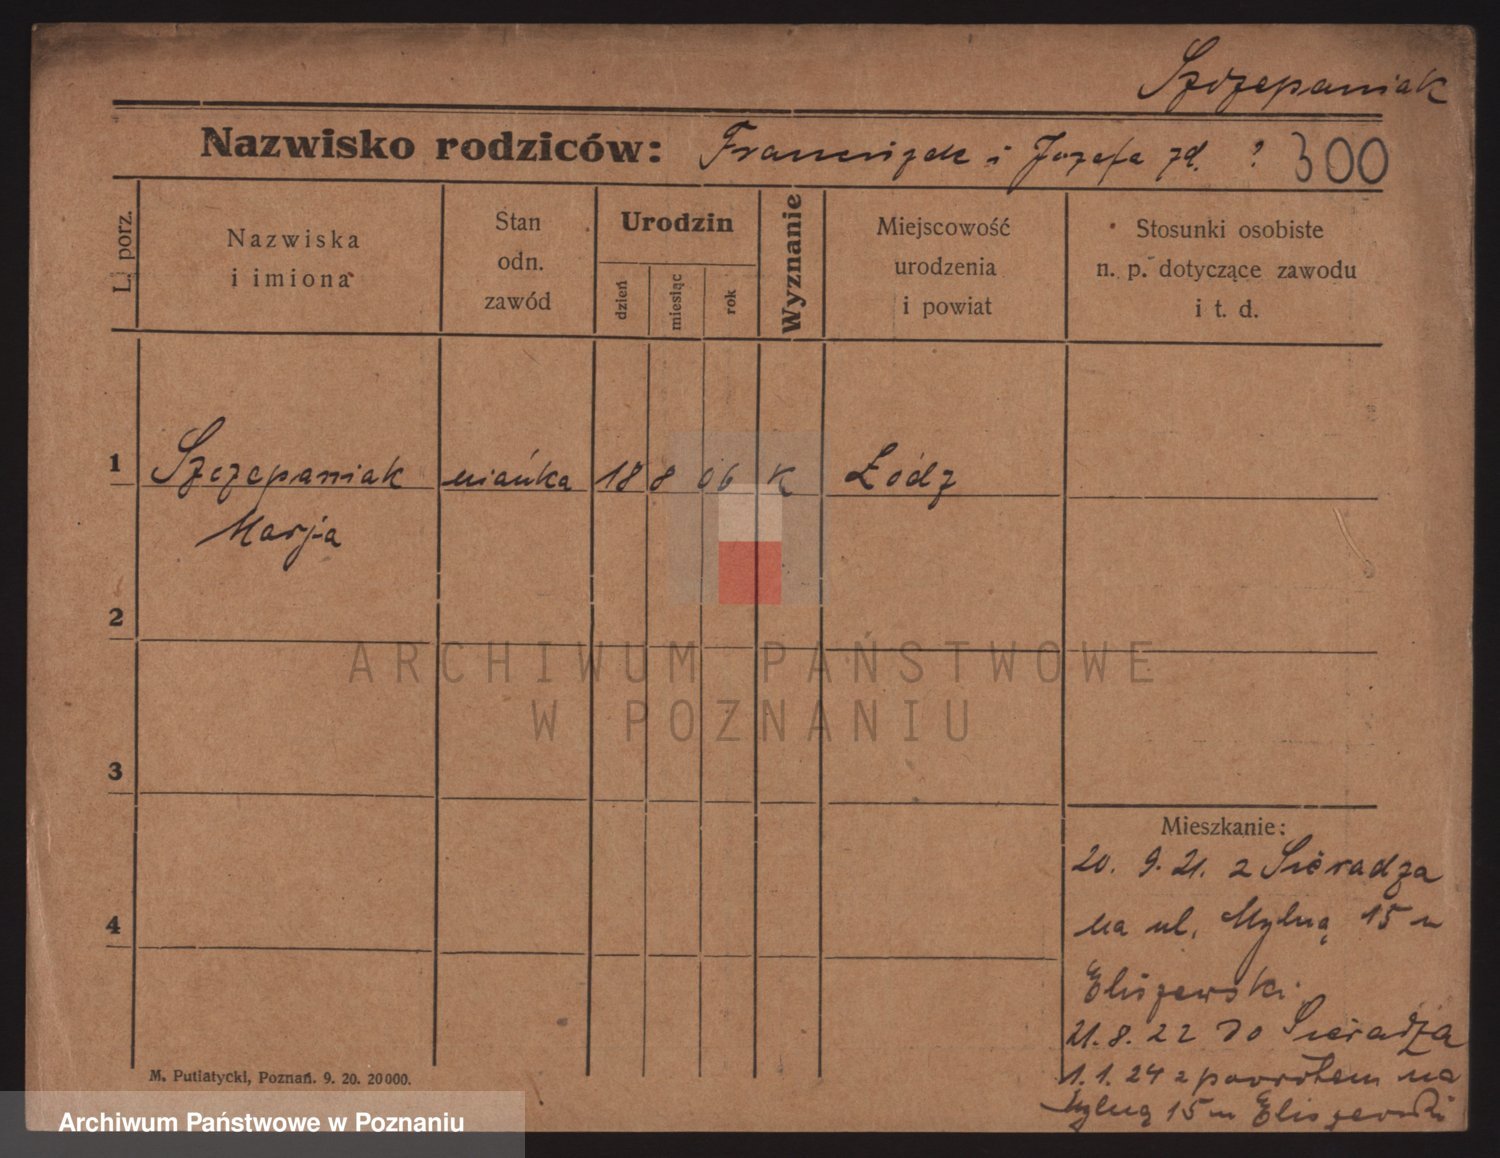 Szczepaniak
Nazwisko rodziców: Franciszek i Józefa zd. ? 300
L. porz.
Nazwiska
i imiona
Stan
odn.
zawód
Urodzin
dzień
miesiąc
rok
Wyznanie
Miejscowość
urodzenia
i powiat
Stosunki osobiste
n. p. dotyczące zawodu
i t. d.
1 Szczepaniak niańka 18 8 06 K Łódz
Marja
2
ARCHIWUM PAŃSTWOWE
W POZNANIU
3
Mieszkanie:
20. 9. 21. z Sieradza
4
na ul. Mylną 15 u
Eliszewski
21. 8. 22 do Sieradza
1. 1. 24 z powrotem na
Mylną 15 u Eliszewski
M. Putiatycki, Poznań. 9. 20. 20000.
Archiwum Państwowe w Poznaniu